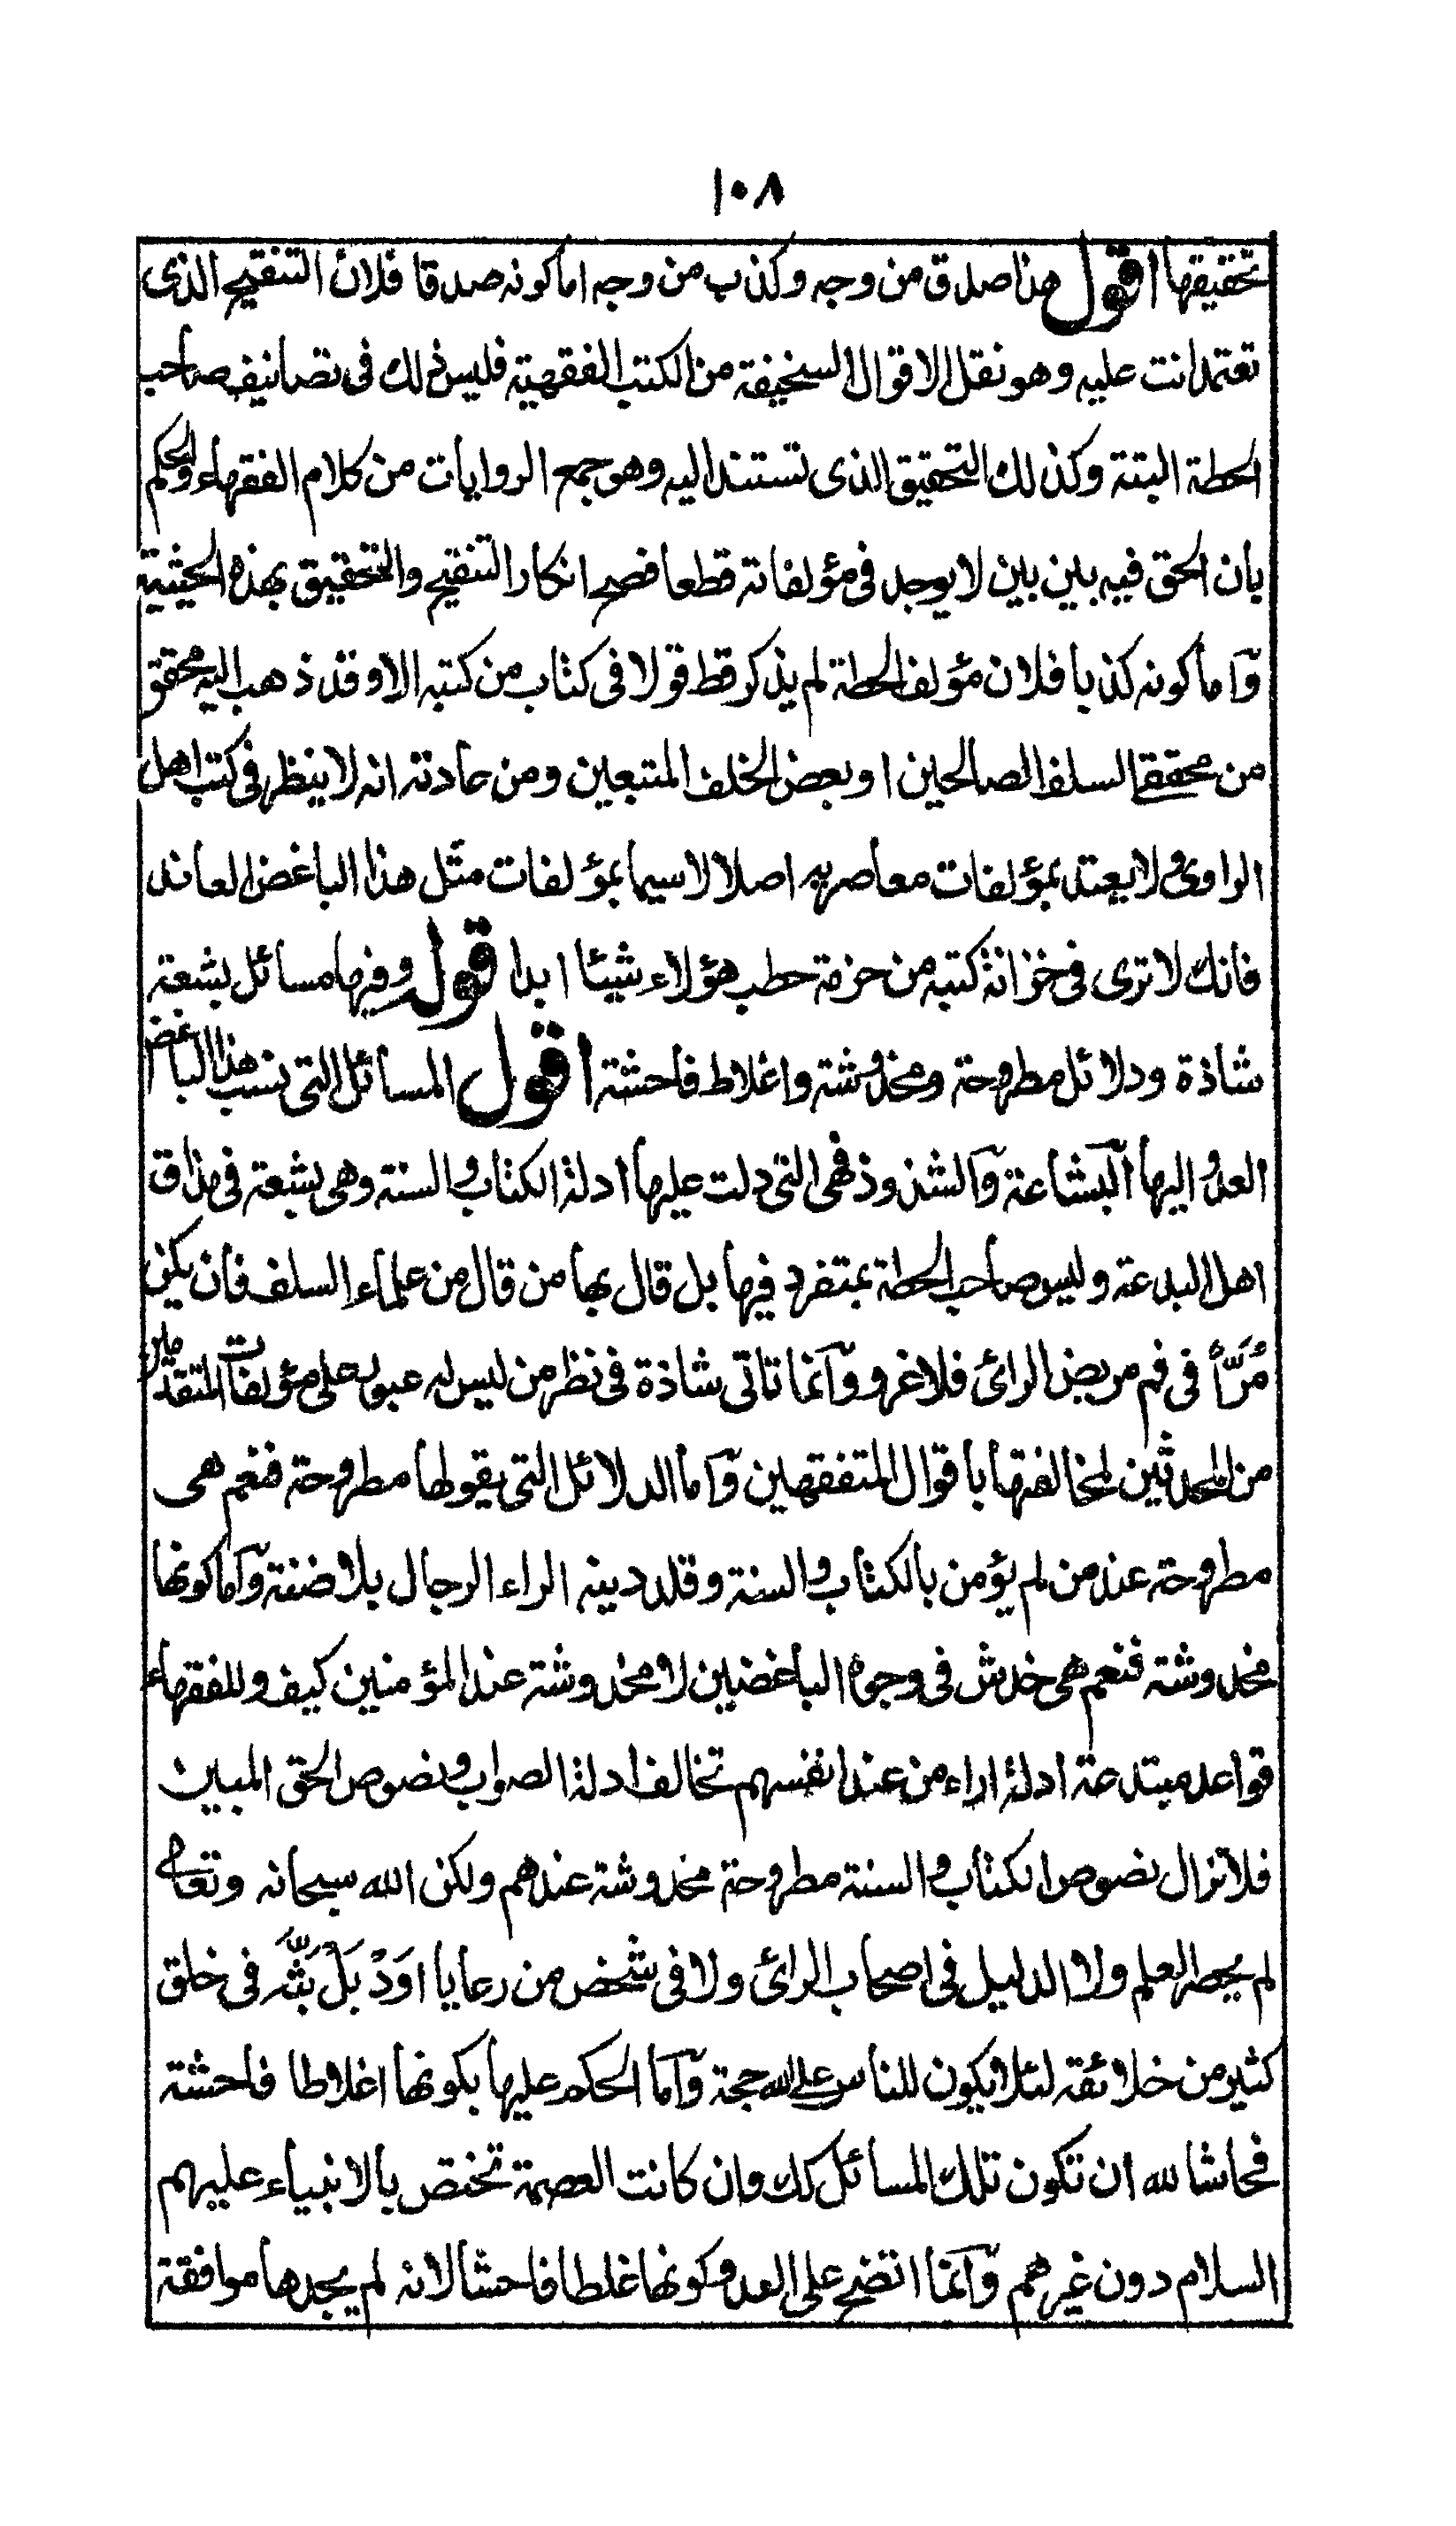 ١٠٨
تحقيقها اقول هذا صدق من وجه وكذب من وجه اما كونه صدقا فلان التنقيح الذى
تعتمد انت عليه وهو نقل الاقوال السخيفة من الكتب الفقهية فليس ذلك فى تصانيف صاحب
الحطة البتة وكذلك التحقيق الذى تستند اليه وهو جمع الروايات من كلام الفقهاء والحكم
بان الحق فيه بين بين لا يوجد فى مؤلفاته قطعا فصح انكار التنقيح والتحقيق بهذه الحيثية
وآما كونه كذبا فلان مؤلف الحطة لم يذكر قط قولا فى كتاب من كتبه الا وقد ذهب اليه محقق
من محققى السلف الصالحين او بعض الخلف المتبعين ومن عادته انه لا ينظر فى كتب اهل
الراى ولا يعتد بمؤلفات معاصريه اصلا لا سيما بمؤلفات مثل هذا الباغض المعاند
فانك لا ترى فى خزانة كتبه من حزمة حطب هؤلاء شيئا ابدا قوله وفيها مسائل بشعة
شاذة ودلائل مطروحة ومخدوشة واغلاط فاحشة اقول المسائل التى نسب هذا الباغض
العدو اليها البشاعة وآلشذوذ فهى التى دلت عليها ادلة الكتاب والسنة وهى بشعة فى مذاق
اهل البدعة وليس صاحب الحطة بمتفرد فيها بل قال بها من قال من علماء السلف فان يكن
مُرَّاً فى فم مريض الرائ فلا غرو وآنما تاتى شاذة فى نظر من ليس له عبور على مؤلفات المتقدمين
من المحدثين لمخالفتها باقوال المتفقهين وآما الدلائل التى يقولها مطروحة فنعم هى
مطروحة عند من لم يؤمن بالكتاب والسنة وقلد دينه الراء الرجال بلا ضنة وآما كونها
مخدوشة فنعم هى خدش فى وجوه الباغضين لا مخدوشة عند المؤمنين كيف وللفقهاء
قواعد مبتدعة ادلة اراء من عند انفسهم تخالف ادلة الصواب ونصوص الحق المبين
فلا تزال نصوص الكتاب والسنة مطروحة مخدوشة عندهم ولكن الله سبحانه وتعالى
لم يحصر العلم ولا الدليل فى اصحاب الرائ ولا فى شخص من رعايا اوَدْ بَلْ بَثَّه فى خلق
كثير من خلائقه لئلا يكون للناس على الله حجة وآما الحكم عليها بكونها اغلاطا فاحشة
فحاشا لله ان تكون تلك المسائل كك وان كانت العصمة تختص بالانبياء عليهم
السلام دون غيرهم وآنما اتضح على العدو كونها غلطا فاحشا لانه لم يجدها موافقة